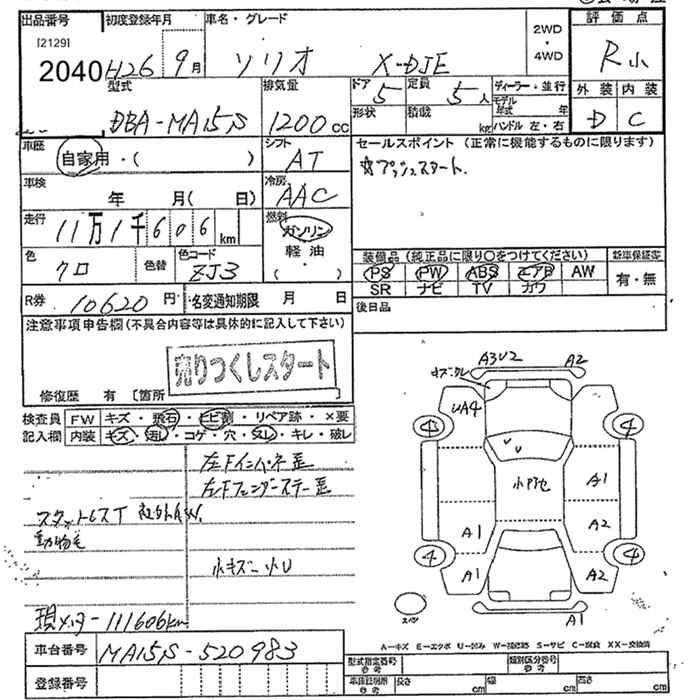 出品番号
[2129]
2040
初度登録年月
H26 9月
車名・グレード
ソリオ X-DJE
2WD・4WD
評価点
R小
外装 内装
D C
型式
DBA-MA15S
排気量
1200cc
ドア
5
定員
5人
形状
積載
kg
ディーラー・並行
モデル年式 年
ハンドル 左・右
車歴
自家用・( )
シフト
AT
セールスポイント (正常に機能するものに限ります)
☆プッシュスタート.
車検
年 月( 日)
冷房
AAC
走行
11万1千606km
燃料
ガソリン
軽油
( )
色
クロ
色替
色コード
ZJ3
装備品(純正品に限り○をつけてください)
PS PW ABS エアB AW
SR ナビ TV カワ
新車保証書
有・無
R券
10620円
名変通知期限 月 日
後日品
注意事項申告欄(不具合内容等は具体的に記入して下さい)
売りつくしスタート
修復歴 有 [箇所
検査員記入欄
FW キズ・飛石・ヒビ割・リペア跡・×要
内装 キズ・汚レ・コゲ・穴・スレ・キレ・破レ
左Fインパネ歪
左Fフェンダーステー歪
スタットレスT 社外AW.
動物毛
小キズ 小U
現メーター111606km
車台番号
MA15S-520983
登録番号
A3U2
A2
UA4
A1
A2
A1
A1
A2
A1
4
4
4
4
スペア
A-キズ E-エクボ U-凹み W-補修跡 S-サビ C-腐食 XX-交換済
型式指定番号
参考
類別区分番号
参考
車庫証明用
参考
長さ cm
幅 cm
高さ cm